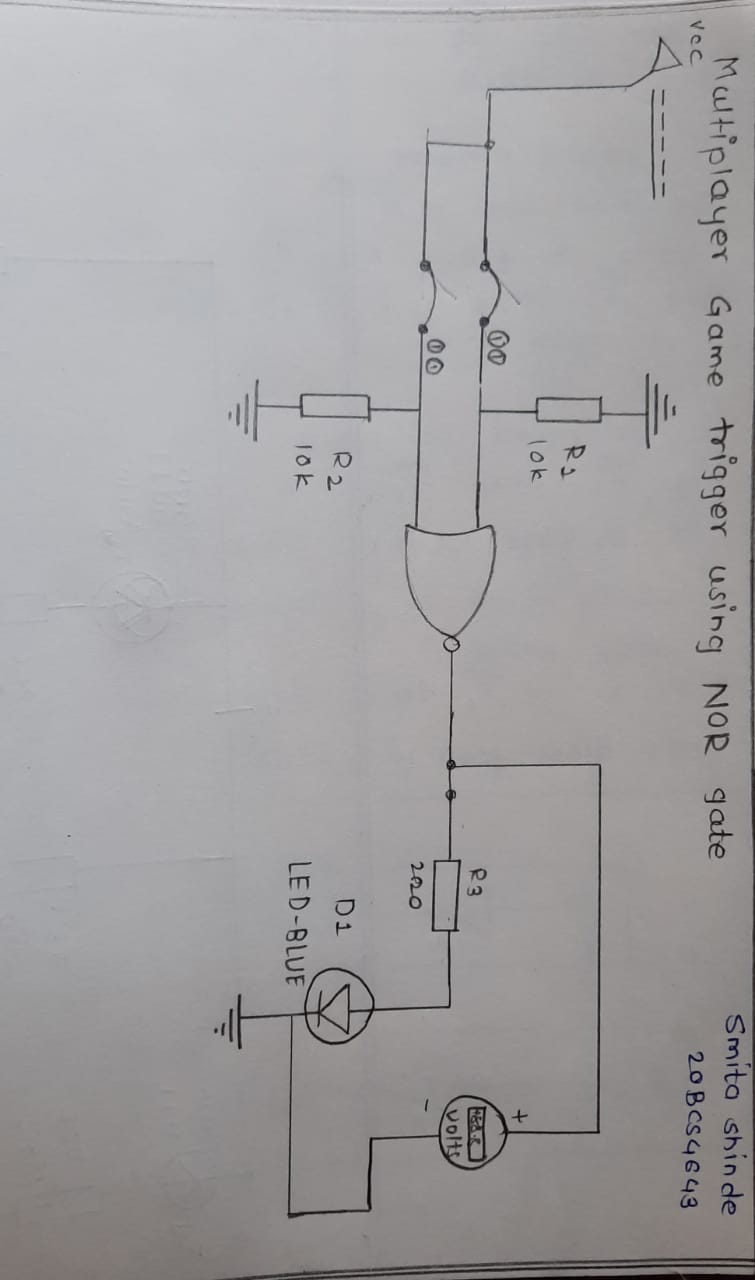 Multiplayer Game trigger using NOR gate
Smita shinde
20BCS4643
vcc
R1
10k
R2
10k
R3
220
+
volts
-
D1
LED-BLUE